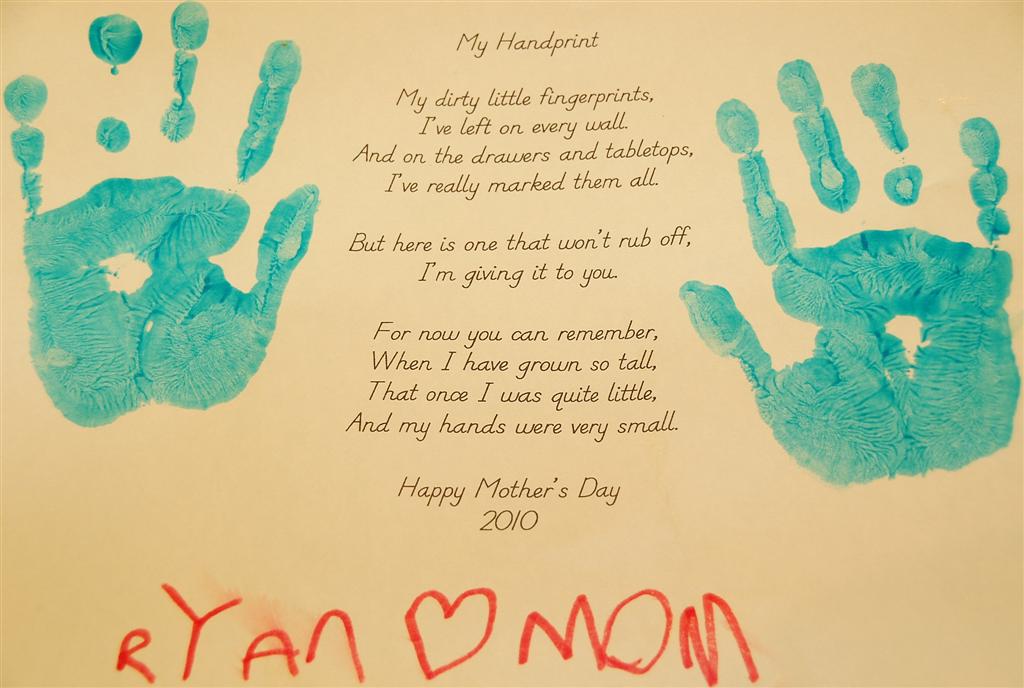 My Handprint
My dirty little fingerprints,
I've left on every wall.
And on the drawers and tabletops,
I've really marked them all.
But here is one that won't rub off,
I'm giving it to you.
For now you can remember,
When I have grown so tall,
That once I was quite little,
And my hands were very small.
Happy Mother's Day
2010
RYAn ♡ MOM